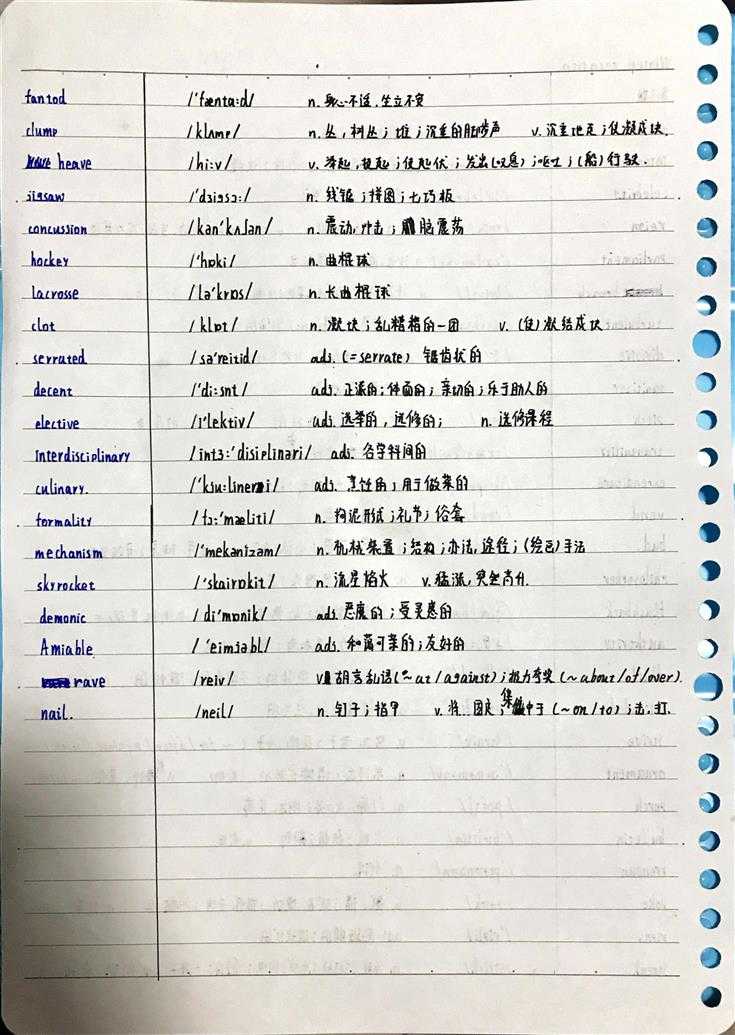 fantod /'fænta:d/ n. 身心不适,坐立不安
clump /klʌmp/ n. 丛,树丛;堆;沉重的脚步声 v. 沉重地走;使凝成块.
heave /hi:v/ v. 举起,提起;使起伏;发出(叹息);呕吐;(船)行驶.
jigsaw /'dʒigsɔ:/ n. 线锯;拼图;七巧板
concussion /kən'kʌʃən/ n. 震动,冲击;脑震荡
hockey /'hɒki/ n. 曲棍球
lacrosse /lə'krɒs/ n. 长曲棍球
clot /klɒt/ n. 凝块;乱糟糟的一团 v. (使)凝结成块
serrated /sə'reitid/ adj. (=serrate) 锯齿状的
decent /'di:snt/ adj. 正派的;体面的;亲切的;乐于助人的
elective /ɪ'lektiv/ adj. 选举的,选修的; n. 选修课程
Interdisciplinary /intɜ:'disiplinəri/ adj. 各学科间的
culinary. /'kju:linəri/ adj. 烹饪的;用于做菜的
formality /fɔ:'mæliti/ n. 拘泥形式;礼节;俗套
mechanism /'mekənizəm/ n. 机械装置;结构;办法,途径;(绘画)手法
skyrocket /'skairɒkit/ n. 流星焰火 v. 猛涨,突然高升.
demonic /di'mɒnik/ adj. 恶魔的;受灵感的
Amiable /'eimjəbl/ adj. 和蔼可亲的;友好的
rave /reiv/ v 胡言乱语(~at/against);极力夸奖(~about/of/over).
nail. /neil/ n. 钉子;指甲 v. 将…固定,集中于(~on/to);击,打.